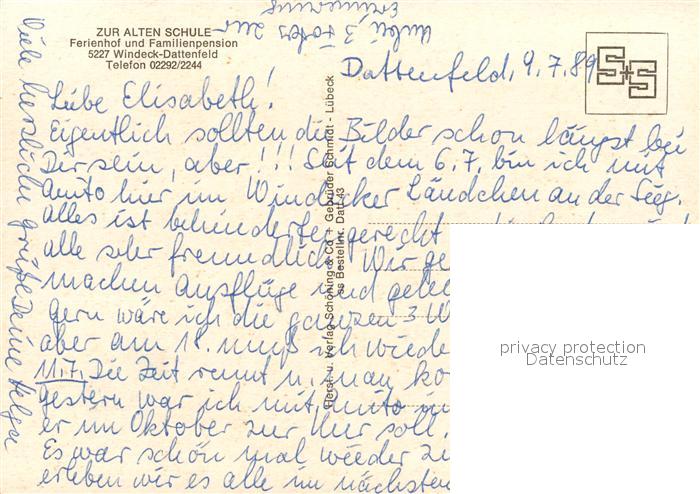 ZUR ALTEN SCHULE
Ferienhof und Familienpension
5227 Windeck-Dattenfeld
Telefon 02292/2244
Anbei 3 Fotos zur
Erinnerung
S+S
Dattenfeld, 9.7.89
Liebe Elisabeth!
Eigentlich sollten die Bilder schon längst bei
Dir sein, aber!!! Seit dem 6.7. bin ich mit
Anito hier im Windecker Ländchen an der Sieg.
Alles ist behindertengerecht
alle sehr freundlich. Wir ge
machen Ausflüge und
gern wäre ich die ganzen 3 W
aber am 18. muß ich wiede
11.7. Die Zeit rennt u. man ko
gestern war ich mit Anito in
er im Oktober zur Kur soll.
Es war schön mal wieder zu
erleben wir es alle im nächsten
Viele herzliche Grüße Deine Helga
Herst. u. Verlag Schöning & Co + Gebrüder Schmidt - Lübeck
ss Bestellnr. Datt 43
privacy protection
Datenschutz